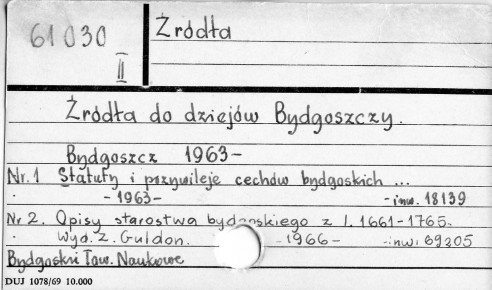 61030
II
Źródła
Źródła do dziejów Bydgoszczy.
Bydgoszcz 1963-
Nr. 1 Statuty i przywileje cechów bydgoskich ...
- 1963- - inw. 18139
Nr 2. Opisy starostwa bydgoskiego z l. 1661-1765.
Wyd. Z. Guldon. -1966- -inw. 69205
Bydgoskie Tow. Naukowe
DUJ 1078/69 10.000